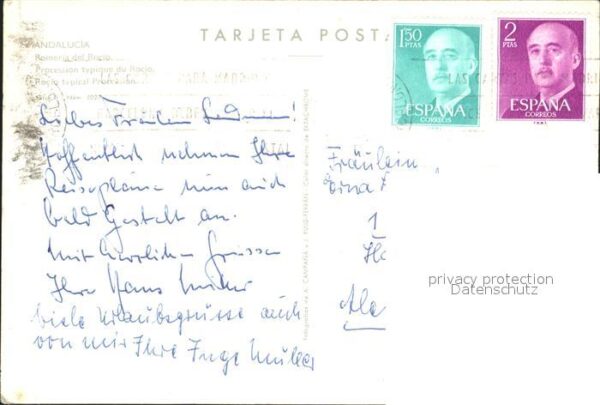 TARJETA POSTA
ANDALUCIA
Romería del Rocío.
Procession typique du Rocío.
Rocío typical Procession.
1,50
PTAS
ESPAÑA
CORREOS
2
PTAS
ESPAÑA
CORREOS
Liebes Fräulein
Hoffentlich nehmen Ihre
Reisepläne nun auch
bald Gestalt an.
Mit herzlichen Grüssen
Ihr Hans Müller
viele Urlaubsgrüsse auch
von mir Ihre Inge Müller
Fräulein
Erna
1
privacy protection
Datenschutz